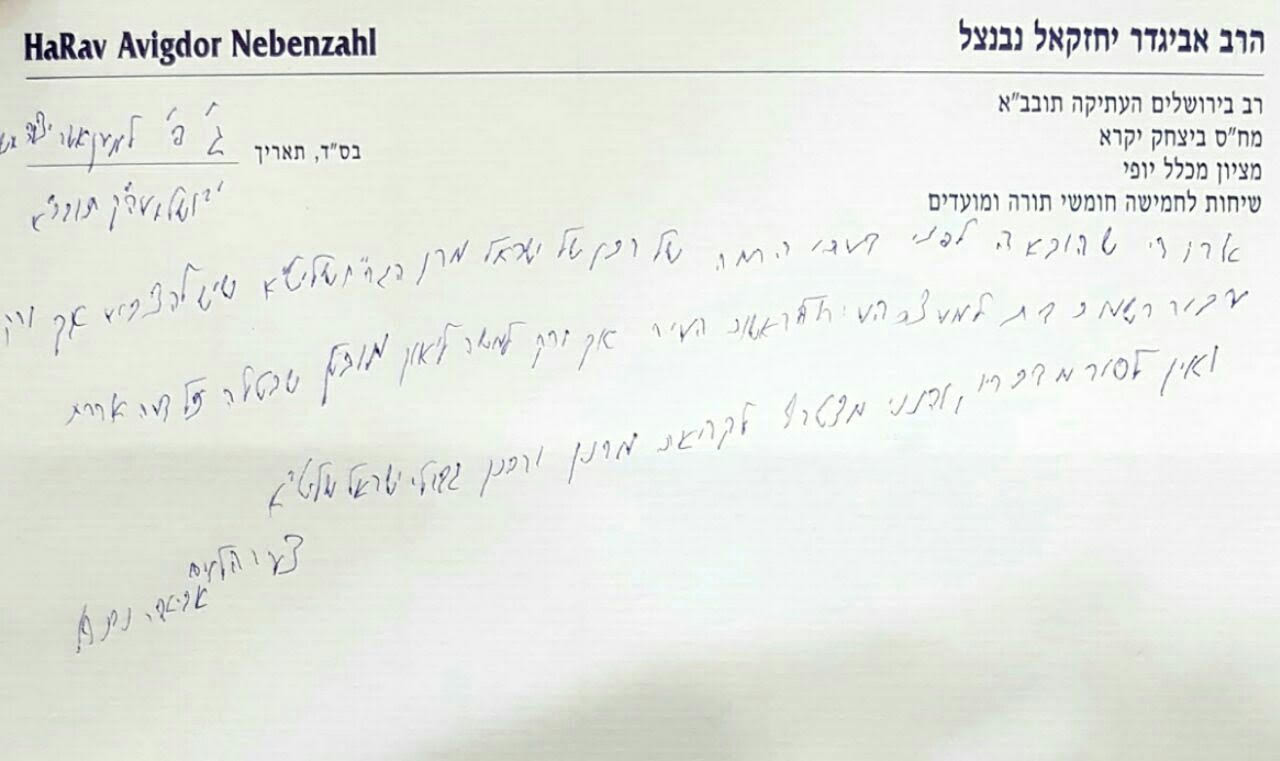 HaRav Avigdor Nebenzahl
הרב אביגדר יחזקאל נבנצל
רב בירושלים העתיקה תובב"א
מח"ס ביצחק יקרא
מציון מכלל יופי
שיחות לחמישה חומשי תורה ומועדים
בס"ד, תאריך ג' פ' למען אשר יצוה
ירושלם עה"ק תובב"א
ארו הי שהובאה לפני דעתו הרמה של רבן של ישראל מרן הגר"ח שליט"א שיש להצביע אך ורק
עבור רשמת דת למועצת העיר ולראשות העיר אך ורק למשה ליאון שבטלה כל דעה אחרת
ואין לסור מדבריו, והנני מצטרף לקריאת מרנן ורבנן גדולי ישראל שליט"א
צעיר הלוים
אביגדר נבנצל